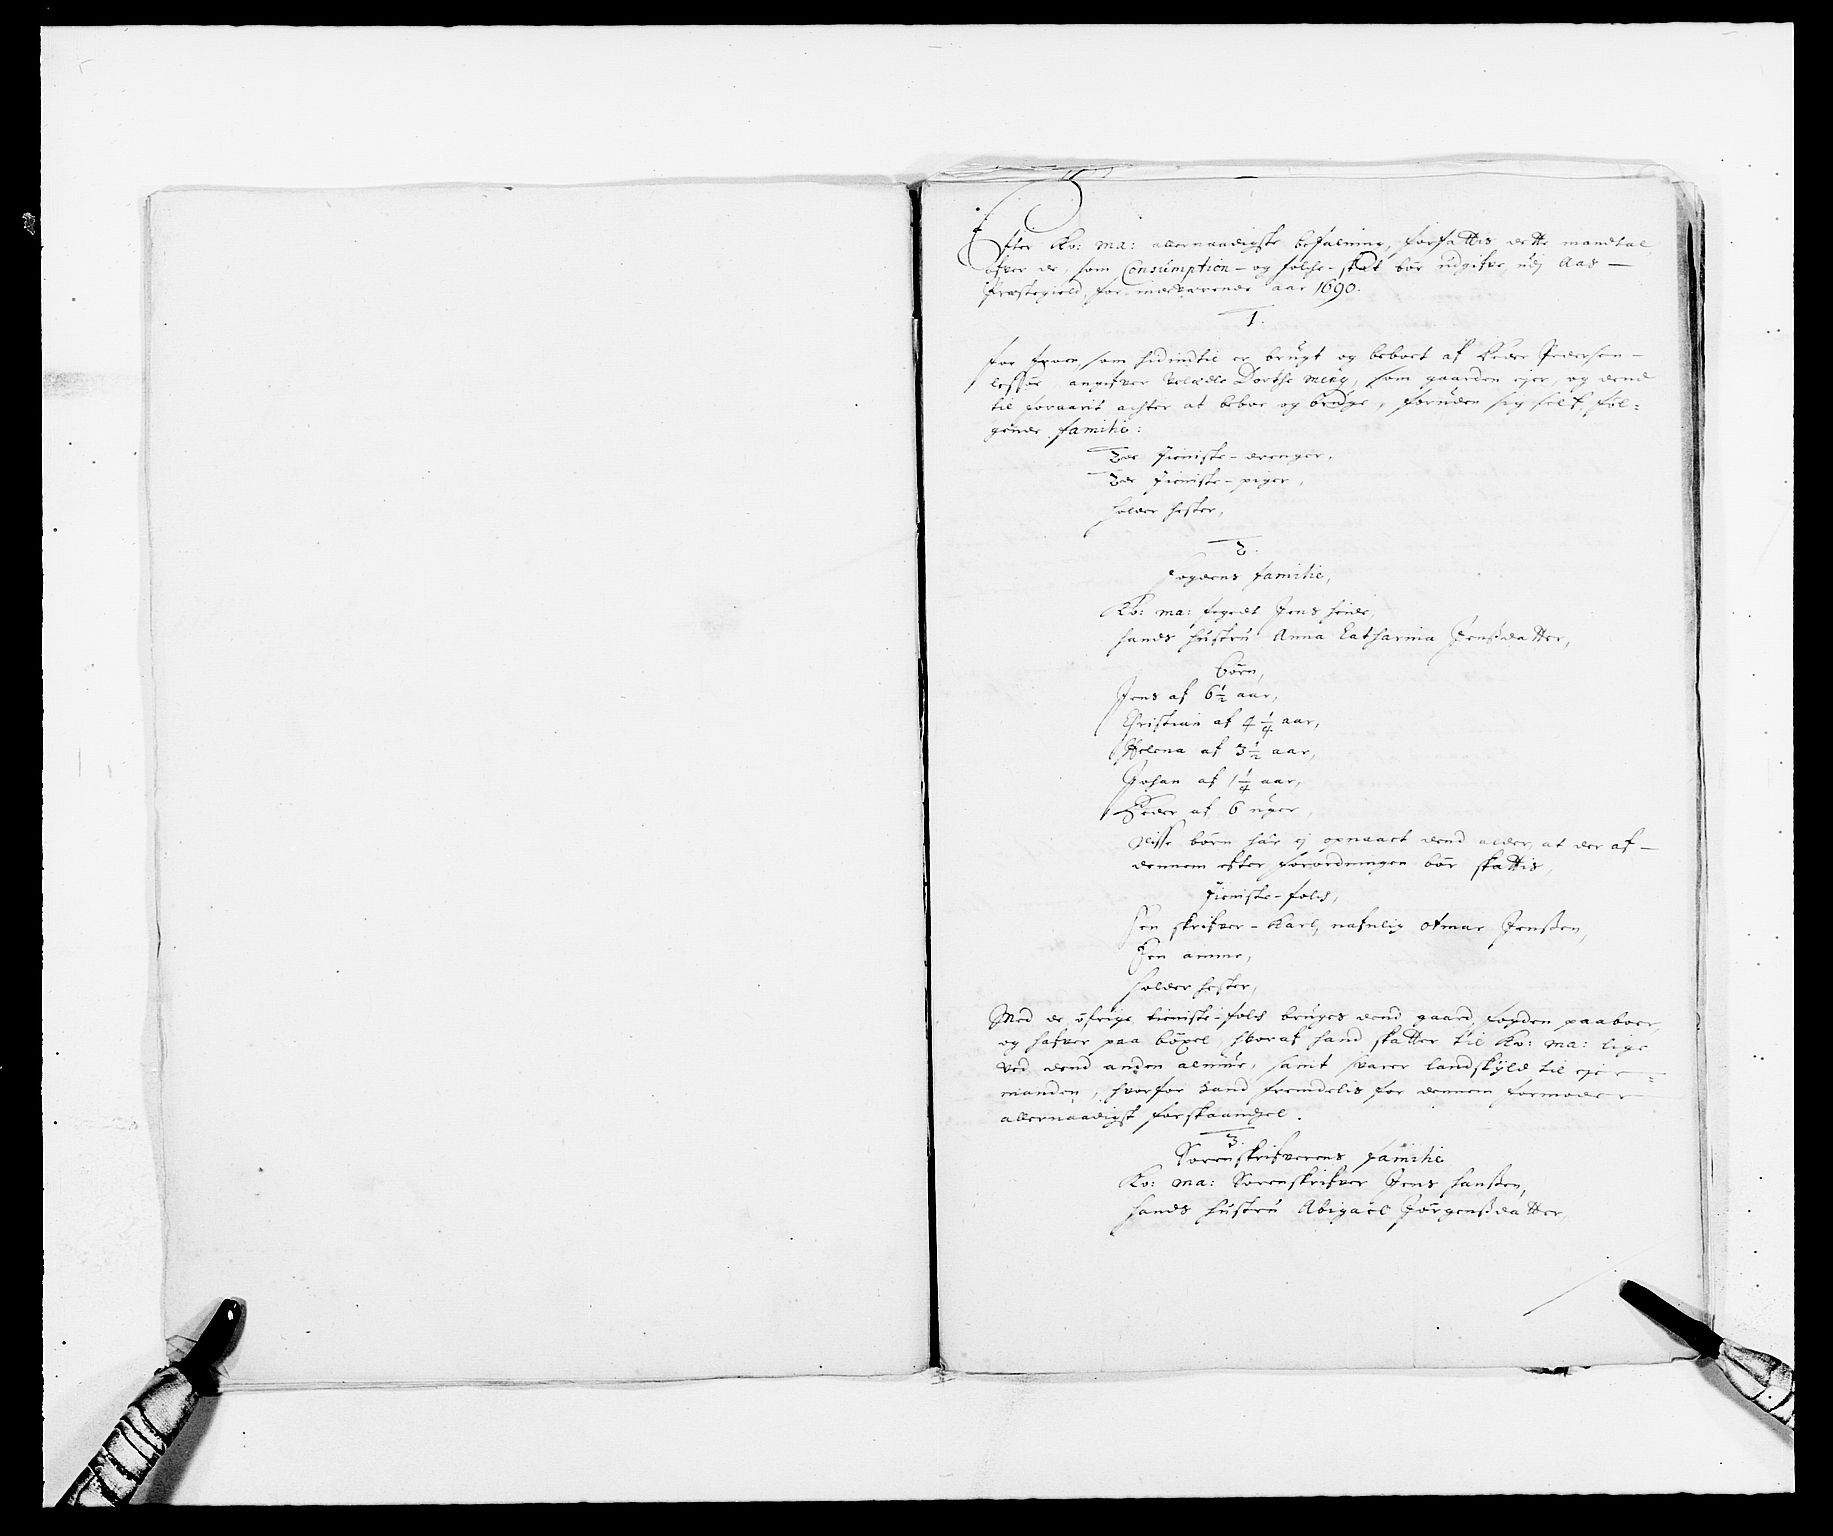 Efter Ko: Ma: allernaadigste befalning, forfattis dette mandtal
ofver de, som Consumption- og folche-skat bør udgifve, udj Aas-
Præstegield, for indeværende aar 1690.
1.
for som hidindtil er brugt og beboet af Peder Pedersen-
angifver Velædle Dorthe som gaarden ejer, og dend
til foraarit achter at beboe og bruge, foruden sig self, føl=
gende familie:
2de tieniste-drenger,
2de tieniste-piger,
holder hester,
2.
fogdens familie,
Ko: Ma: fogedt Jens
hands hustru Anna Catharina Jenßdatter,
børn,
Jens af 6½ aar,
Christian af 4¼ aar,
Helena af 3½ aar,
Johan af 1¼ aar,
Peder af 6 uger,
disse børn har ej opnaaet dend alder, at der af-
dennem efter forordningen bør skattis,
tieniste-folch,
Een skrifver-karl, nafnlig Otmar Jenßen,
Een amme,
holder hester,
Med de øfrige tieniste-folch bruges dend gaard fogden paaboer,
og hafver paa bøxel, hvoraf hand skatter til Ko: Ma: lige
ved dend anden almue, samt svarer landskyld til ejer=
manden, hvorfor hand fremdelis for dennem formoder
allernaadigst forskaanßel.
3.
Sorenskrifverens familie
Ko: Ma: Sorenskrifver Jens Hanßen,
hands hustru Abigael Jørgenßdatter,